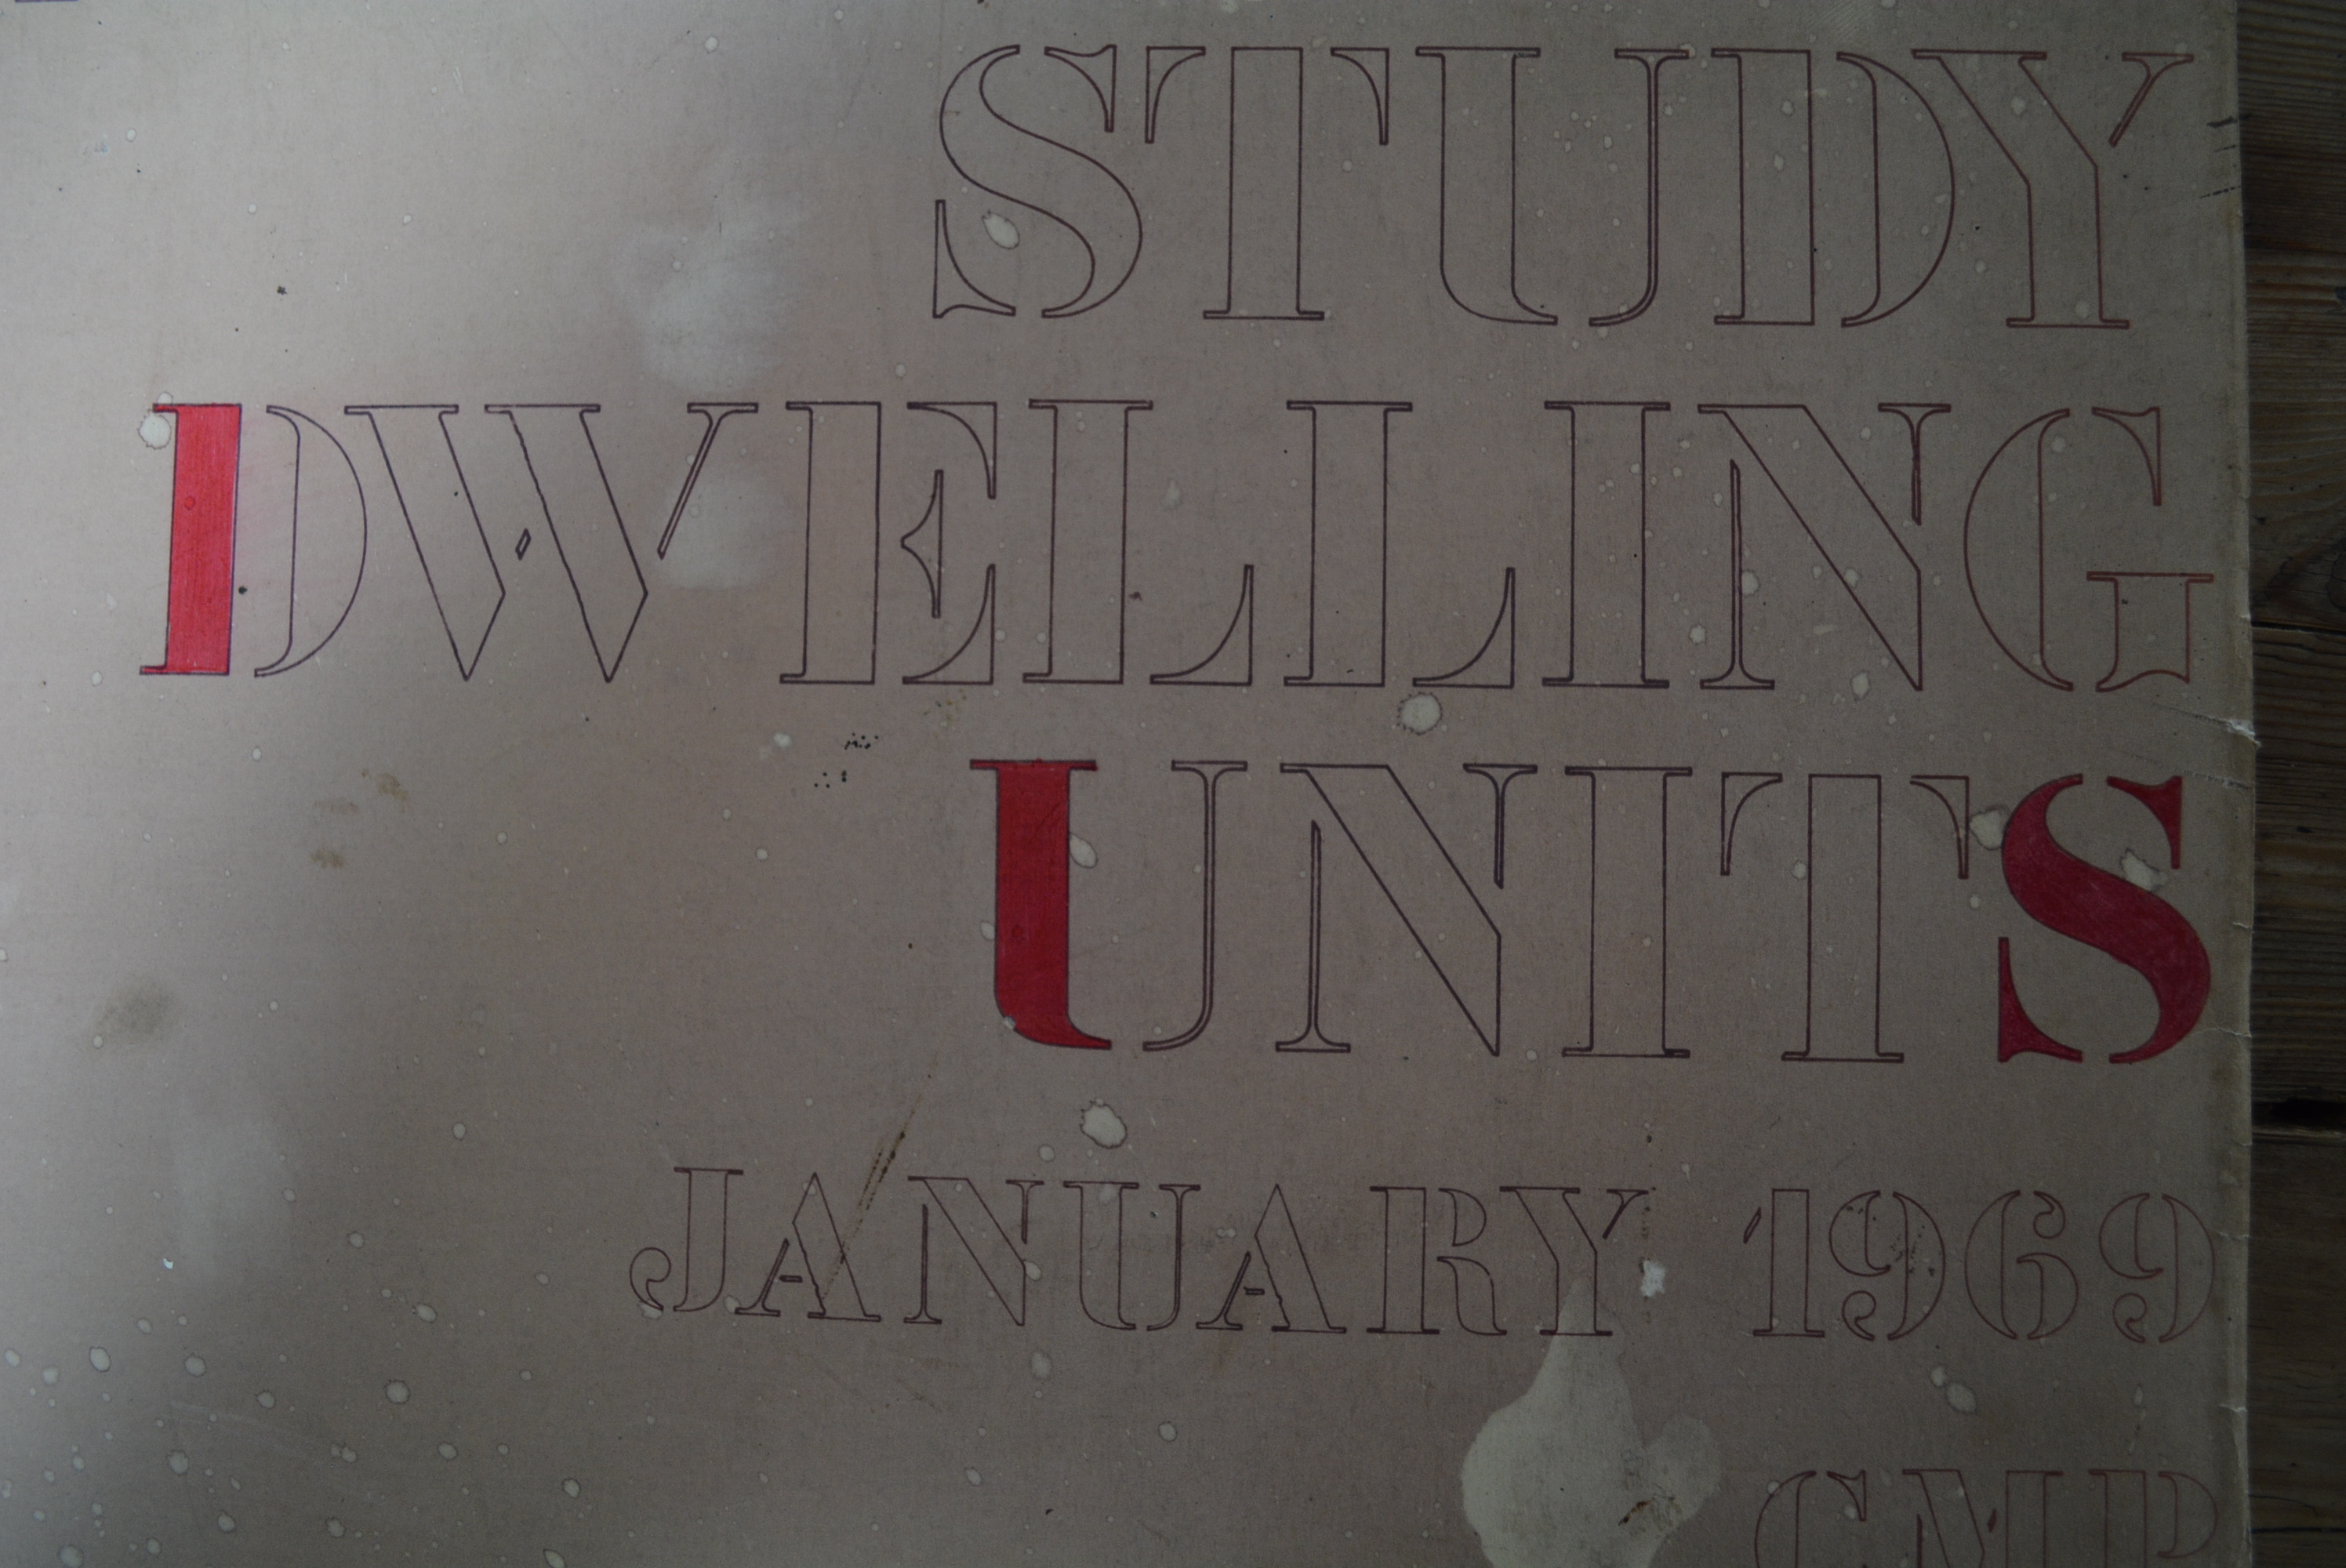 STUDY
DWELLING
UNITS
JANUARY 1969